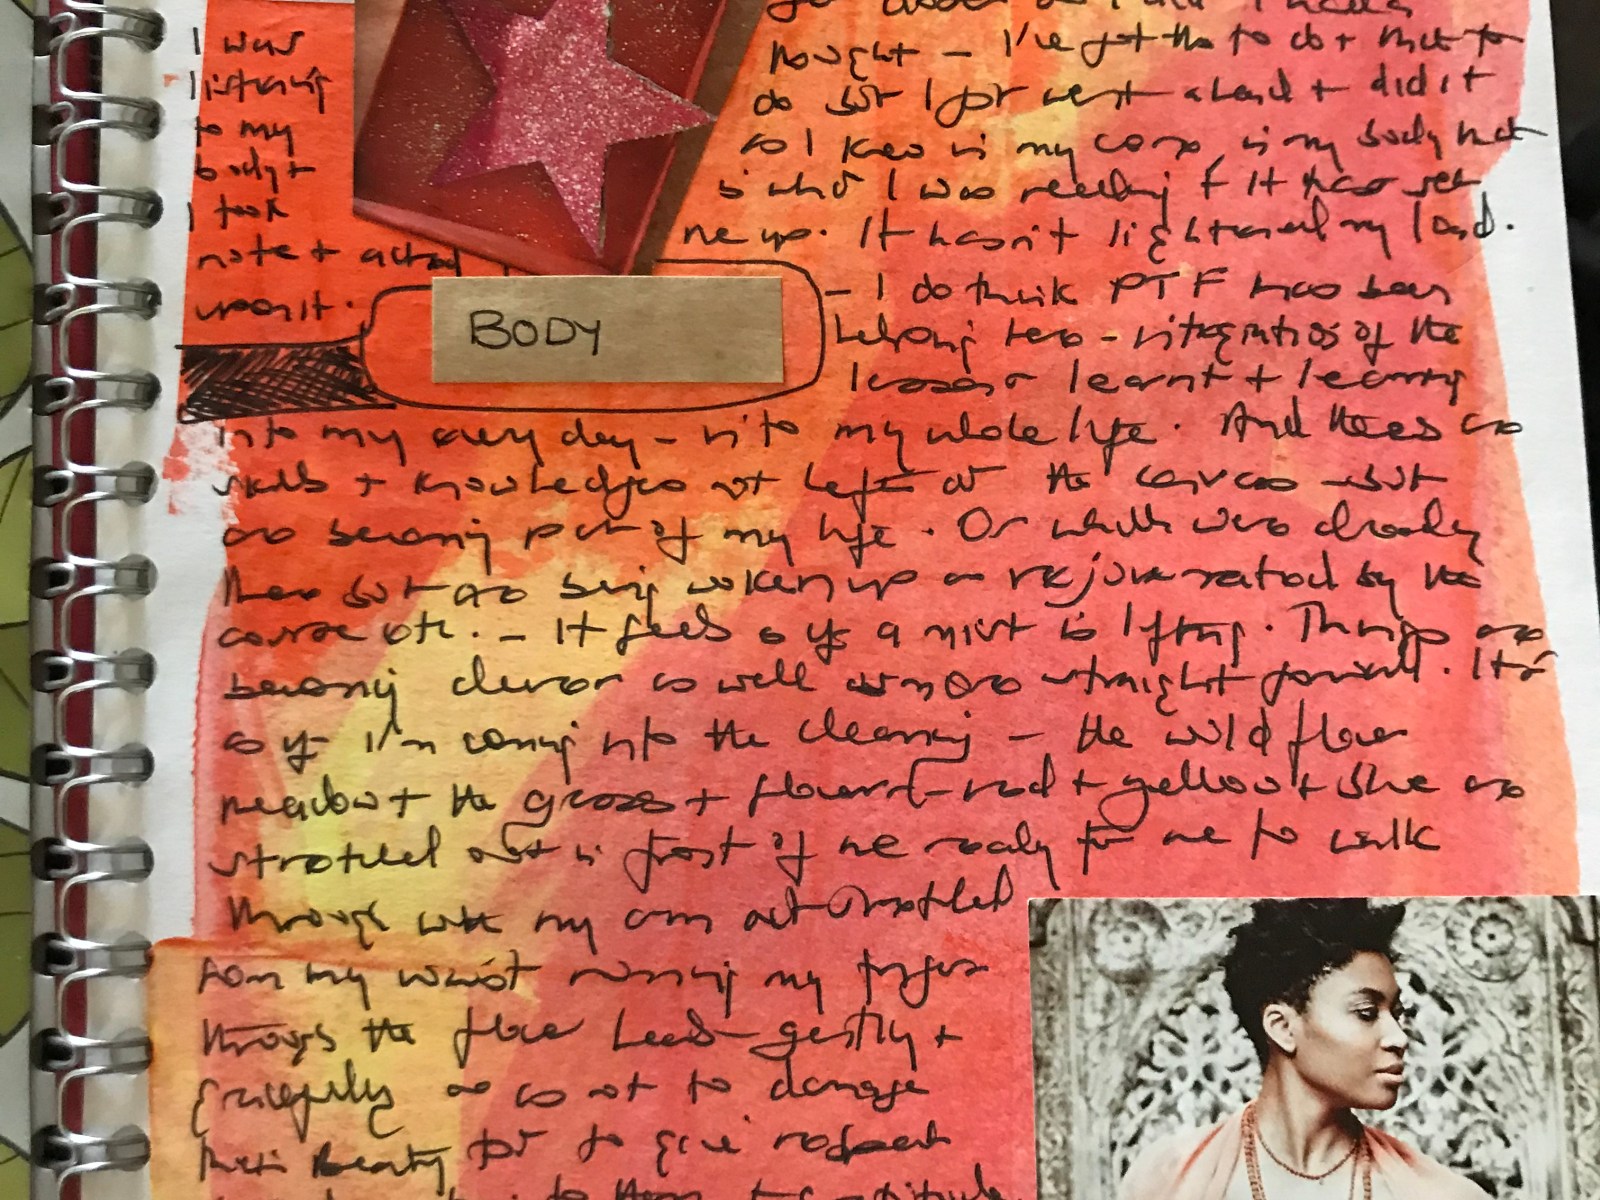 I was
listening
to my
body +
I took
note + acted
upon it.
thought — I've got this to do + that to
do but I just went ahead + did it
so I knew in my core, in my body that
is what I was needing & it has set
me up. It hasn't lightened my load.
BODY
— I do think PTF has been
helping here - integration of the
lessons learnt + learning
into my every day - into my whole life. And these are
skills + knowledges not left at the canvas - but
are becoming part of my life. Or which were already
there but are being woken up or rejuvenated by the
course etc. — It feels as if a mist is lifting. Things are
becoming clearer as well as more straight forward. It's
as if I'm coming into the clearing — the wild flower
meadow + the grasses + flowers - red + yellow + blue are
stretched out in front of me ready for me to walk
through with my arms outstretched
from my waist running my fingers
through the flower heads - gently +
gracefully so as not to damage
their beauty but to give respect
to them